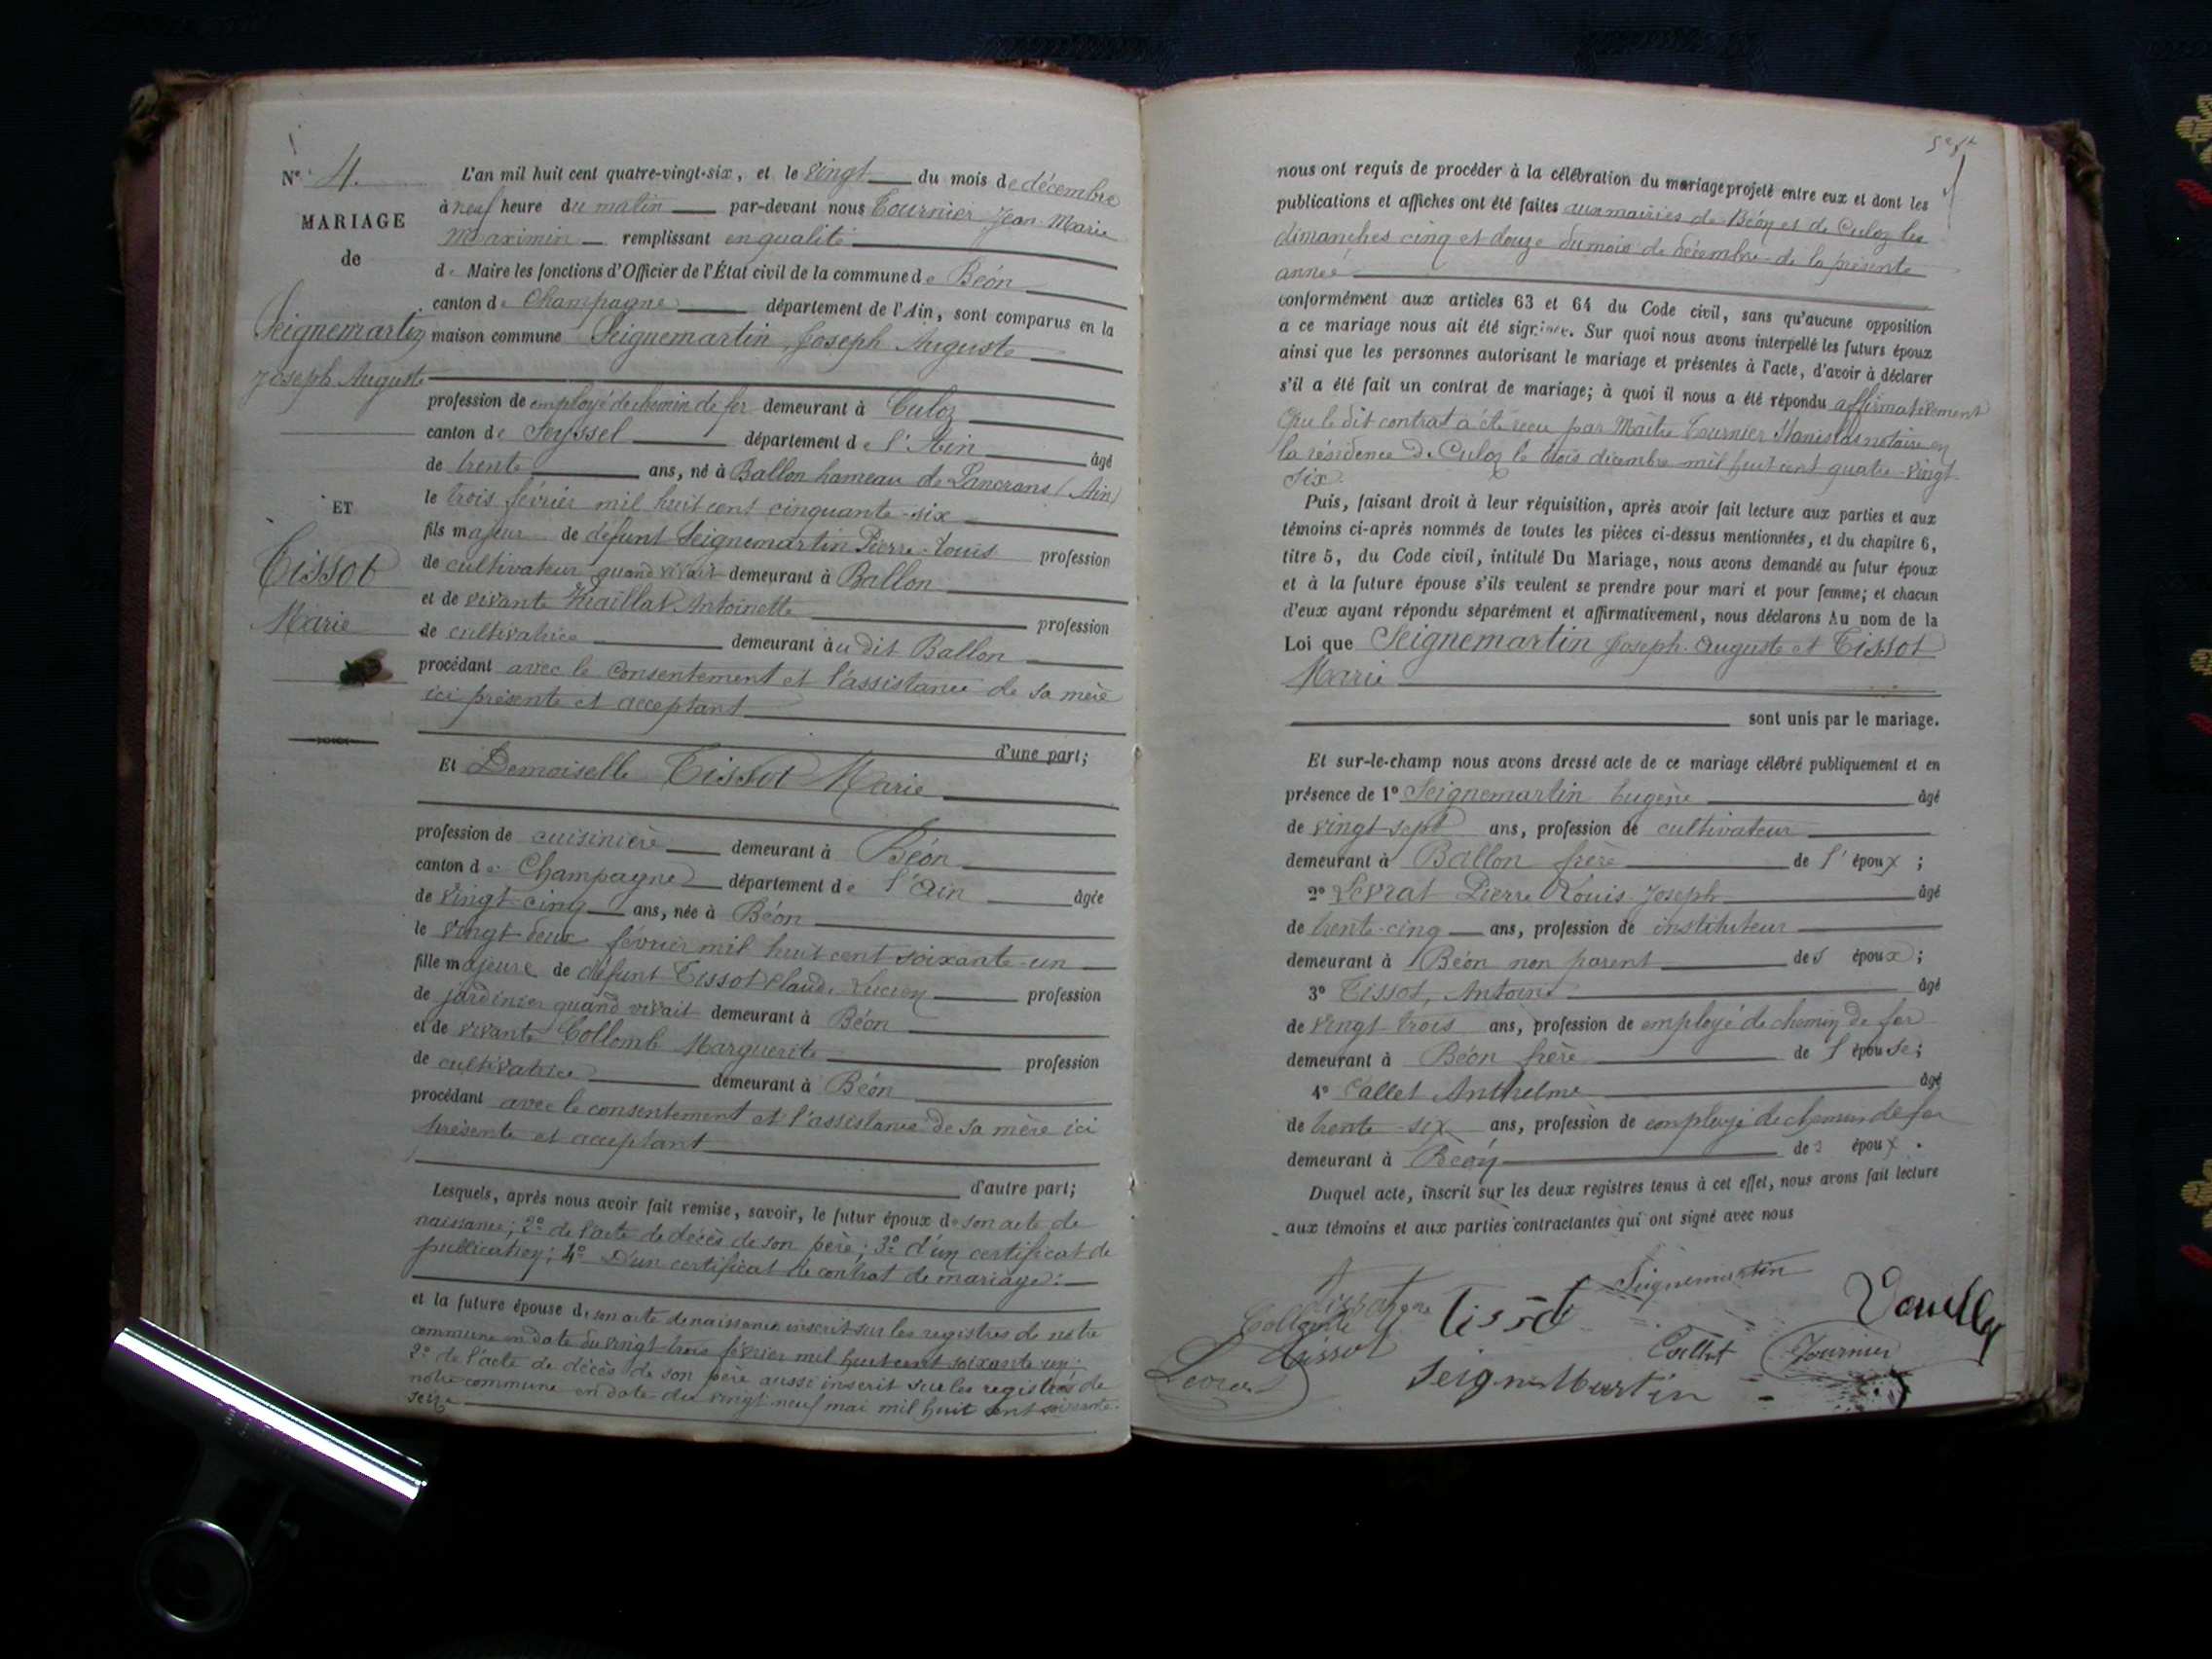 N° 4.
MARIAGE
de
Seignemartin
Joseph Auguste
ET
Tissot
Marie
L'an mil huit cent quatre-vingt-six, et le vingt du mois de décembre
à neuf heure du matin par-devant nous Tournier Jean-Marie
Maximin remplissant en qualité
de Maire les fonctions d'Officier de l'État civil de la commune de Béon
canton de Champagne département de l'Ain, sont comparus en la
maison commune Seignemartin Joseph Auguste
profession de employé de chemin de fer demeurant à Culoz
canton de Seyssel département de l'Ain âgé
de trente ans, né à Ballon hameau de Lancrans (Ain)
le trois février mil huit cent cinquante-six
fils majeur de défunt Seignemartin Pierre-Louis profession
de cultivateur quand vivait demeurant à Ballon
et de vivante Antoinette profession
de cultivatrice demeurant au dit Ballon
procédant avec le consentement et l'assistance de sa mère
ici présente et acceptant
d'une part;
Et Demoiselle Tissot Marie
profession de cuisinière demeurant à Béon
canton de Champagne département de l'Ain âgée
de vingt-cinq ans, née à Béon
le vingt-deux février mil huit cent soixante-un
fille majeure de défunt Tissot Claude Lucien profession
de jardinier quand vivait demeurant à Béon
et de vivante Collomb Marguerite profession
de cultivatrice demeurant à Béon
procédant avec le consentement et l'assistance de sa mère ici
présente et acceptant
d'autre part;
Lesquels, après nous avoir fait remise, savoir, le futur époux de son acte de
naissance; 2° de l'acte de décès de son père; 3° d'un certificat de
publication; 4° D'un certificat de contrat de mariage:
et la future épouse de son acte de naissance inscrit sur les registres de notre
commune en date du vingt-trois février mil huit cent soixante un;
2° de l'acte de décès de son père aussi inscrit sur les registres de
notre commune en date du vingt-neuf mai mil huit cent soixante-
seize
nous ont requis de procéder à la célébration du mariage projeté entre eux et dont les
publications et affiches ont été faites aux mairies de Béon et de Culoz les
dimanches cinq et douze du mois de décembre de la présente
année
conformément aux articles 63 et 64 du Code civil, sans qu'aucune opposition
a ce mariage nous ait été signifiée. Sur quoi nous avons interpellé les futurs époux
ainsi que les personnes autorisant le mariage et présentes à l'acte, d'avoir à déclarer
s'il a été fait un contrat de mariage; à quoi il nous a été répondu affirmativement
Que le dit contrat a été reçu par Maître Tournier Stanislas notaire en
la résidence de Culoz le trois décembre mil huit cent quatre-vingt
six.
Puis, faisant droit à leur réquisition, après avoir fait lecture aux parties et aux
témoins ci-après nommés de toutes les pièces ci-dessus mentionnées, et du chapitre 6,
titre 5, du Code civil, intitulé Du Mariage, nous avons demandé au futur époux
et à la future épouse s'ils veulent se prendre pour mari et pour femme; et chacun
d'eux ayant répondu séparément et affirmativement, nous déclarons Au nom de la
Loi que Seignemartin Joseph-Auguste et Tissot
Marie
sont unis par le mariage.
Et sur-le-champ nous avons dressé acte de ce mariage célébré publiquement et en
présence de 1° Seignemartin Eugène âgé
de vingt-sept ans, profession de cultivateur
demeurant à Ballon frère de l'époux;
2° Levrat Pierre Louis Joseph âgé
de trente-cinq ans, profession de instituteur
demeurant à Béon non parent des époux;
3° Tissot, Antoine âgé
de vingt-trois ans, profession de employé de chemin de fer
demeurant à Béon frère de l'épouse;
4° Callet Anthelme âgé
de trente-six ans, profession de employé de chemin de fer
demeurant à Béon des époux.
Duquel acte, inscrit sur les deux registres tenus à cet effet, nous avons fait lecture
aux témoins et aux parties contractantes qui ont signé avec nous
Seignemartin
Tissot
Collomb
Tissot
Callet
Tournier
Levrat
Seignemartin